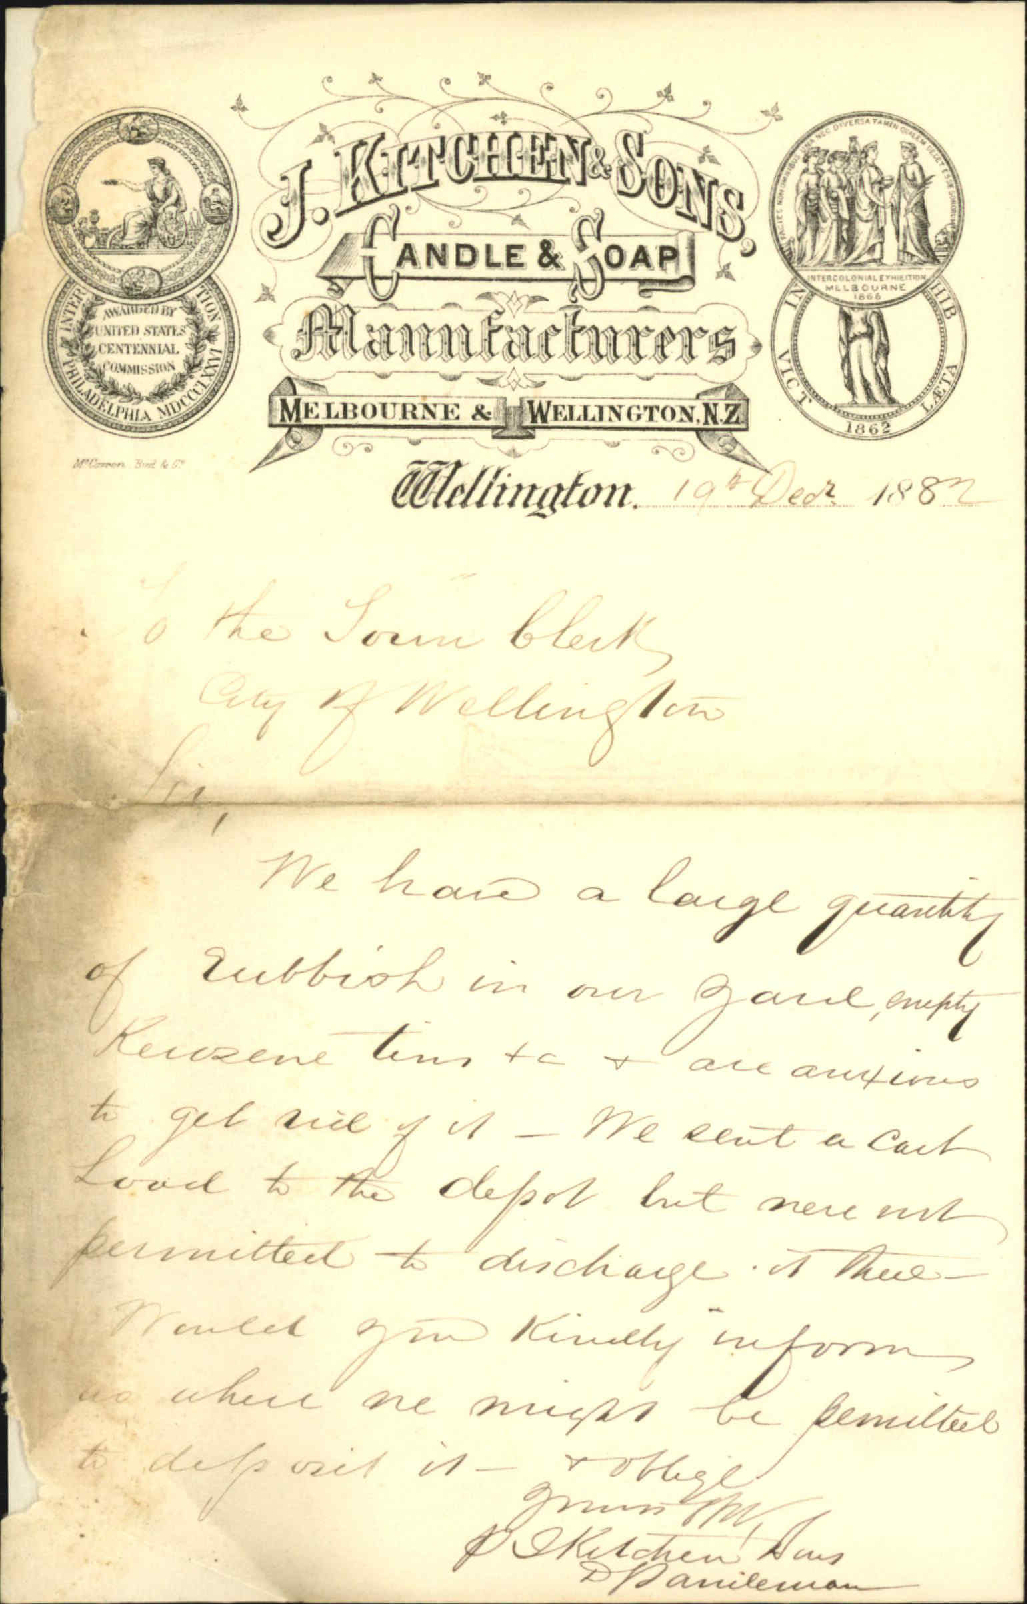 J. KITCHEN & SONS,
CANDLE & SOAP
Manufacturers
MELBOURNE & WELLINGTON, N.Z.
INTER TION
PHILADELPHIA MDCCCLXXVI
AWARDED BY
UNITED STATES
CENTENNIAL
COMMISSION
INTERCOLONIAL EXHIBITION
MELBOURNE
1866
HIB
VICT
LÆTA
1862
Wellington. 19th Decr. 1882
To the Town Clerk,
City of Wellington
Sir,
We have a large quantity
of rubbish in our yard, empty
Kerozene tins &c & are anxious
to get rid of it – We sent a cart
Load to the depot but were not
permitted to discharge it there –
Would you kindly inform
us where we might be permitted
to deposit it – & oblige
Yours
p J Kitchen & Sons